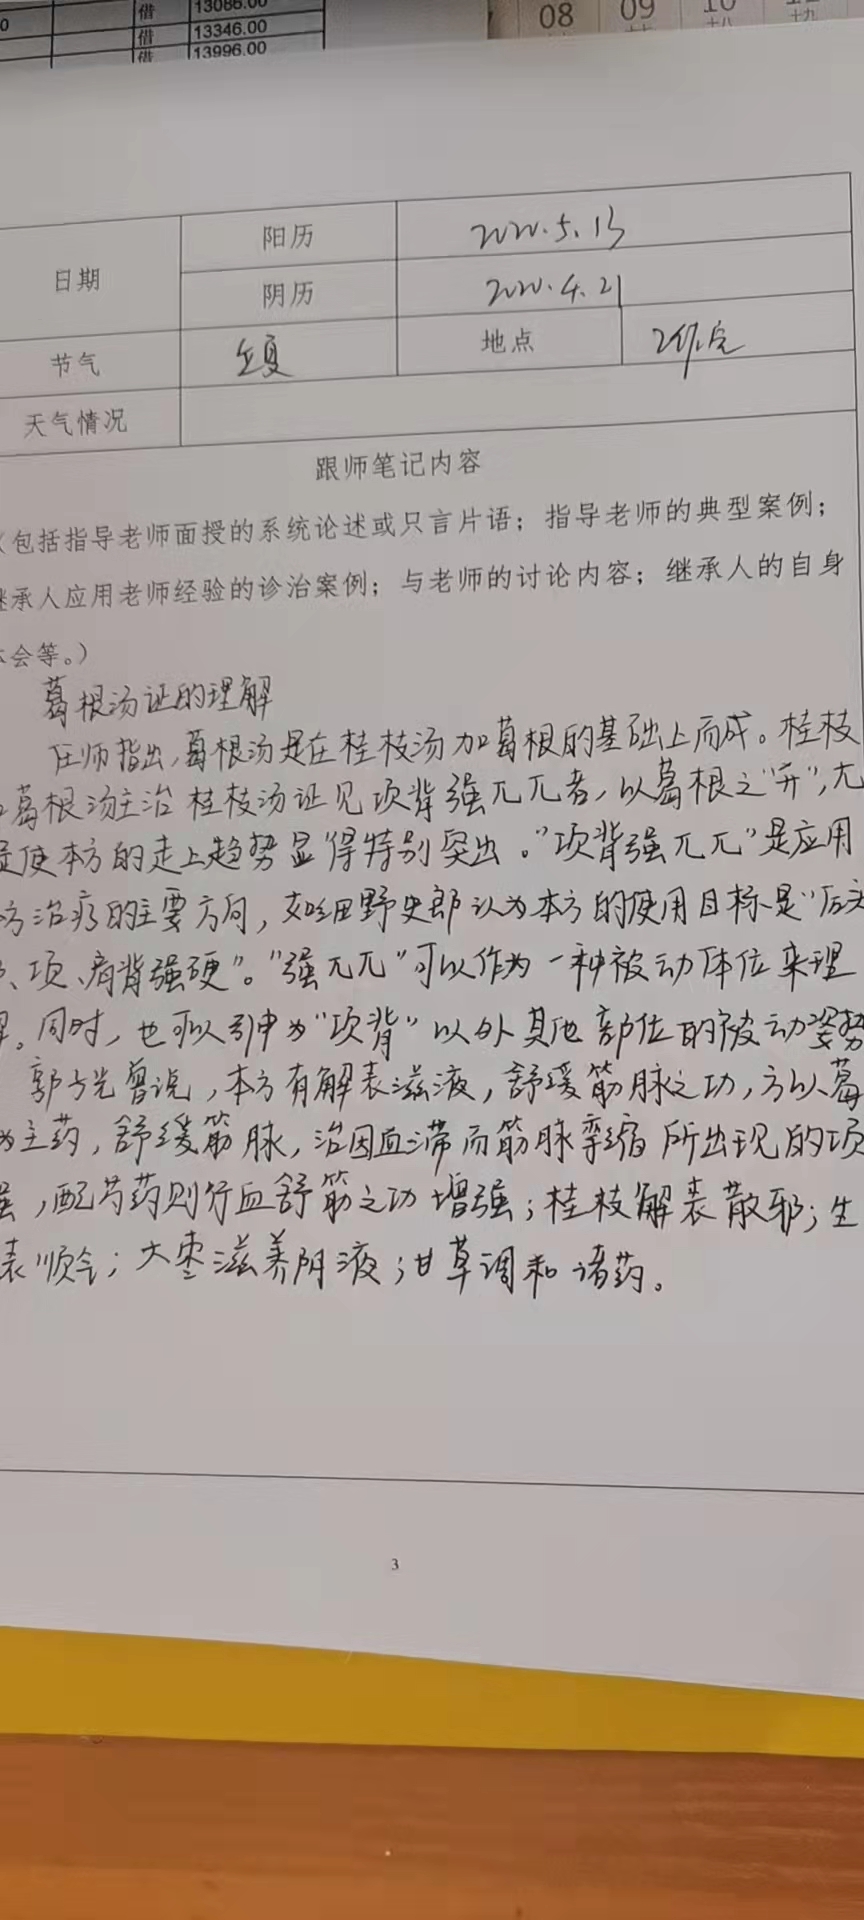 借 13086.00
借 13346.00
借 13996.00
08 09 10
十八 十九
日期 阳历 2020.5.13
阴历 2020.4.21
节气 立夏 地点 工作室
天气情况
跟师笔记内容
（包括指导老师面授的系统论述或只言片语；指导老师的典型案例；
继承人应用老师经验的诊治案例；与老师的讨论内容；继承人的自身
体会等。）
葛根汤证的理解
任师指出，葛根汤是在桂枝汤加葛根的基础上而成。桂枝
葛根汤主治桂枝汤证见项背强兀兀者，以葛根之“升”，尤
使本方的走上趋势显得特别突出。“项背强兀兀”是应用
方治疗的主要方向，如细野史郎认为本方的使用目标是“后头
、项、肩背强硬”。“强兀兀”可以作为一种被动体位来理
。同时，也可以引申为“项背”以外其他部位的被动姿势
郭方光曾说，本方有解表滋液，舒缓筋脉之功，方以葛
为主药，舒缓筋脉，治因血滞而筋脉挛缩所出现的项
，配芍药则行血舒筋之功增强；桂枝解表散邪；生
表顺气；大枣滋养阴液；甘草调和诸药。
3